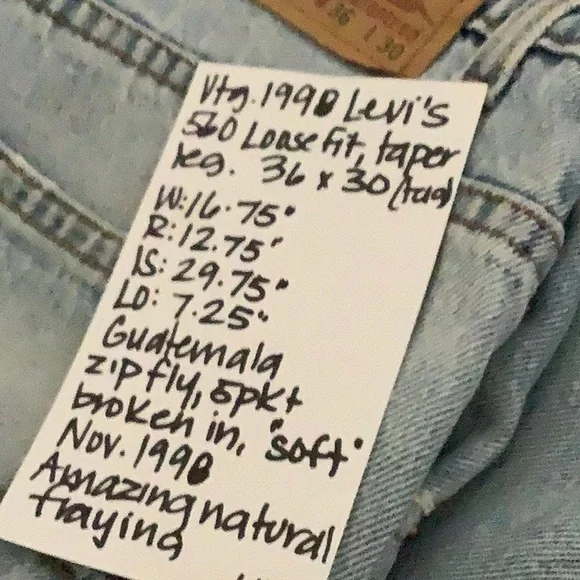 36 | 30
Vtg. 1990 Levi's
560 Loose fit, taper
leg. 36 x 30 (tag)
W: 16.75"
R: 12.75"
IS: 29.75"
LO: 7.25"
Guatemala
zip fly, 5pkt
broken in, "soft"
Nov. 1990
Amazing natural
fraying